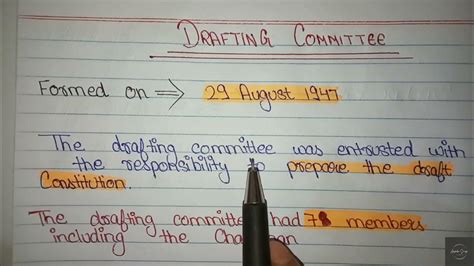 DRAFTING COMMITTEE
Formed on ⇒ 29 August 1947
The drafting committee was entrusted with
the responsibility to prepare the draft
Constitution.
The drafting committee had 7 members
including the Chairman